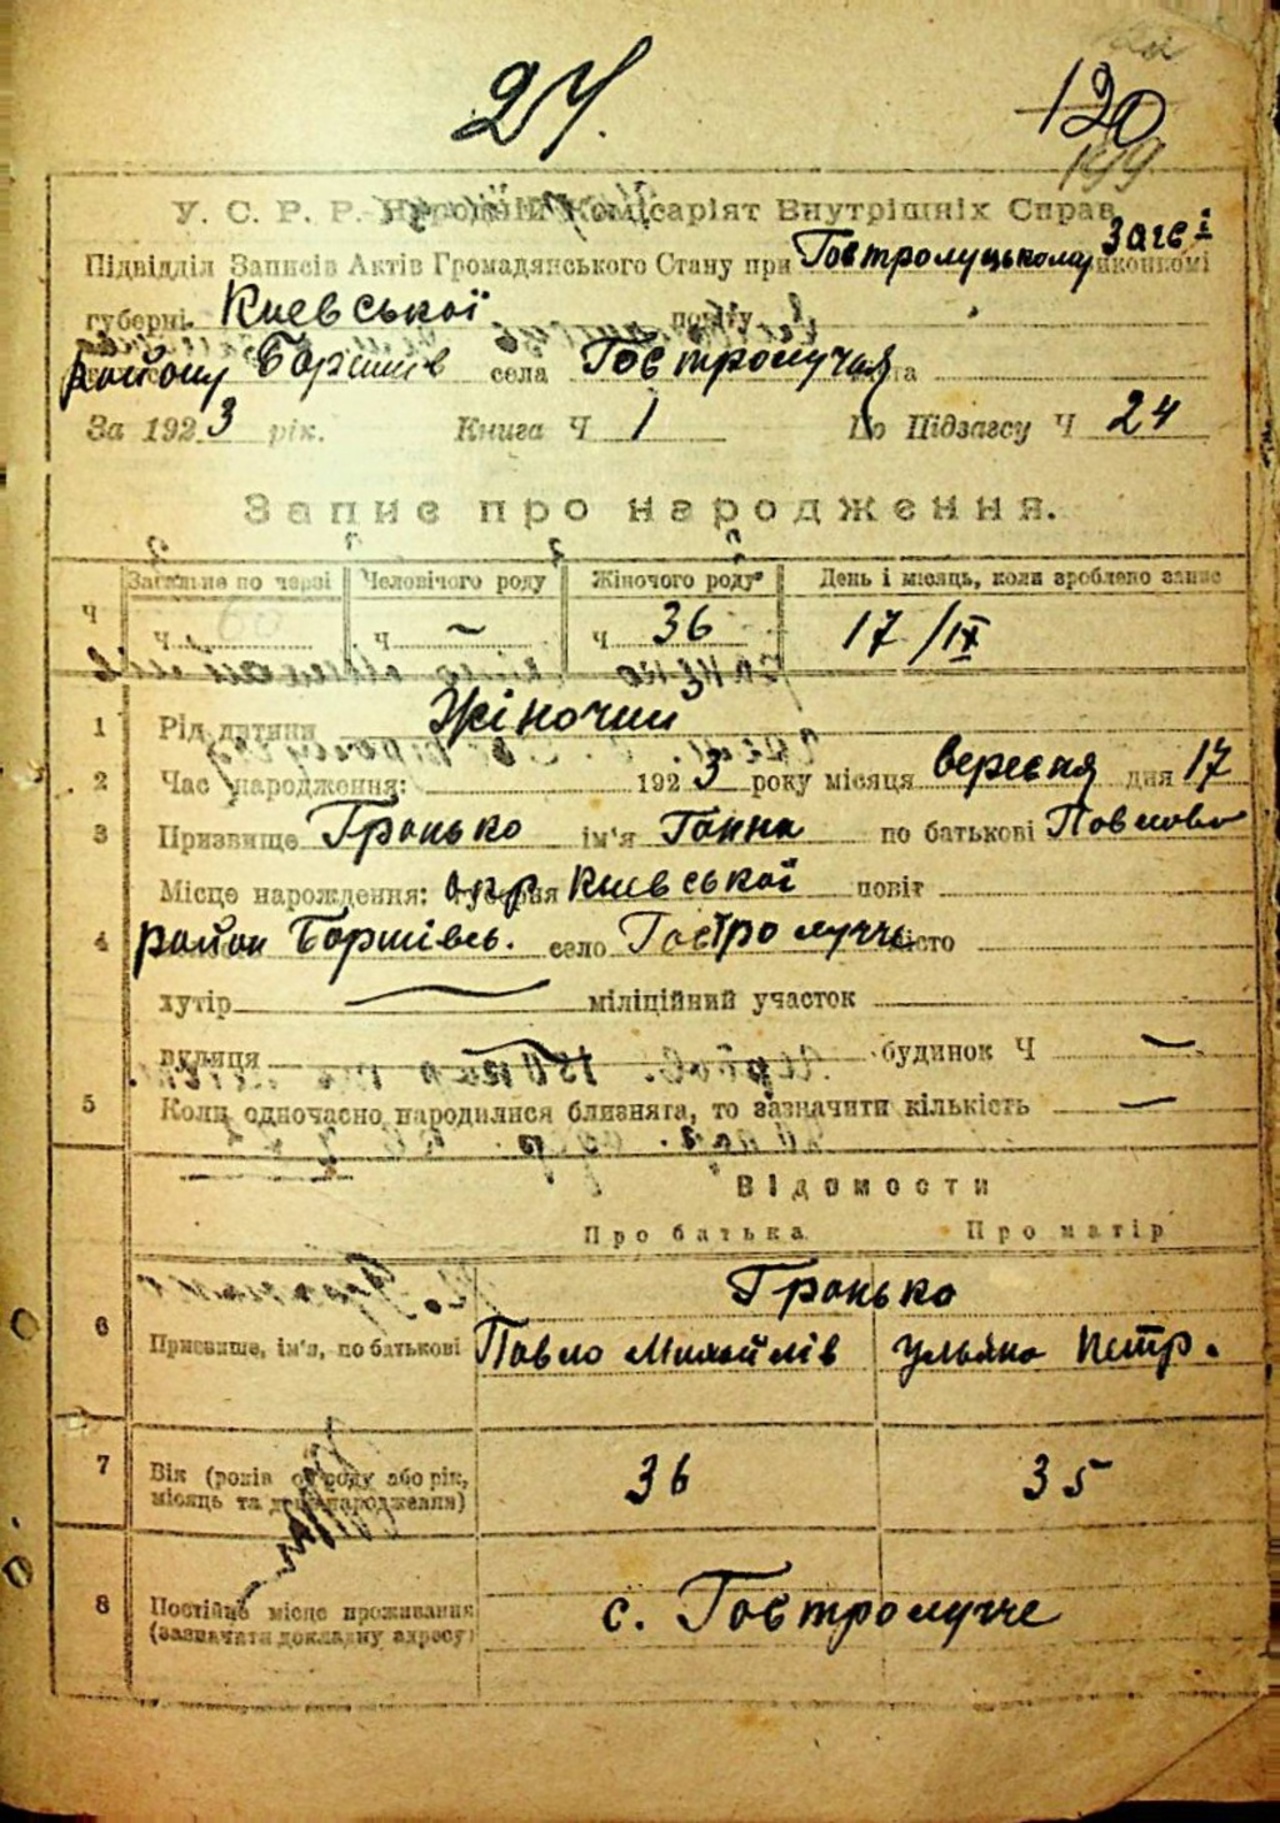 24.
120
199
У. С. Р. Р. Народній Комісаріят Внутрішніх Справ
Підвідділ Записів Актів Громадянського Стану при Гостролуцькому Загсі виконкомі
губерні Киевської повіту
району Баришів села Гостролуччя
За 1923 рік. Книга Ч 1 По Підзагсу Ч 24
Запис про народження.
Ч Загальне по черзі Человічого роду Жіночого роду День і місяць, коли зроблено запис
Ч 60 Ч — Ч 36 17/IX
1 Рід дитини Жіночий
2 Час народження: 1923 року місяця вересня дня 17
3 Призвище Гронько ім'я Ганна по батькові Павлова
Місце нарождення: окр Киевської повіт
4 район Баришівсь. село Гостролуччє місто
хутір — міліційний участок
вулиця — будинок Ч —
5 Коли одночасно народилися близнята, то зазначити кількість —
Відомости
Про батька Про матір
Гронько
6 Призвище, ім'я, по батькові Павло Михайлів Ульяна Петр.
7 Вік (років от роду або рік, місяць та день народження) 36 35
8 Постійне місце проживання (зазначати докладну адресу) с. Гостролучче